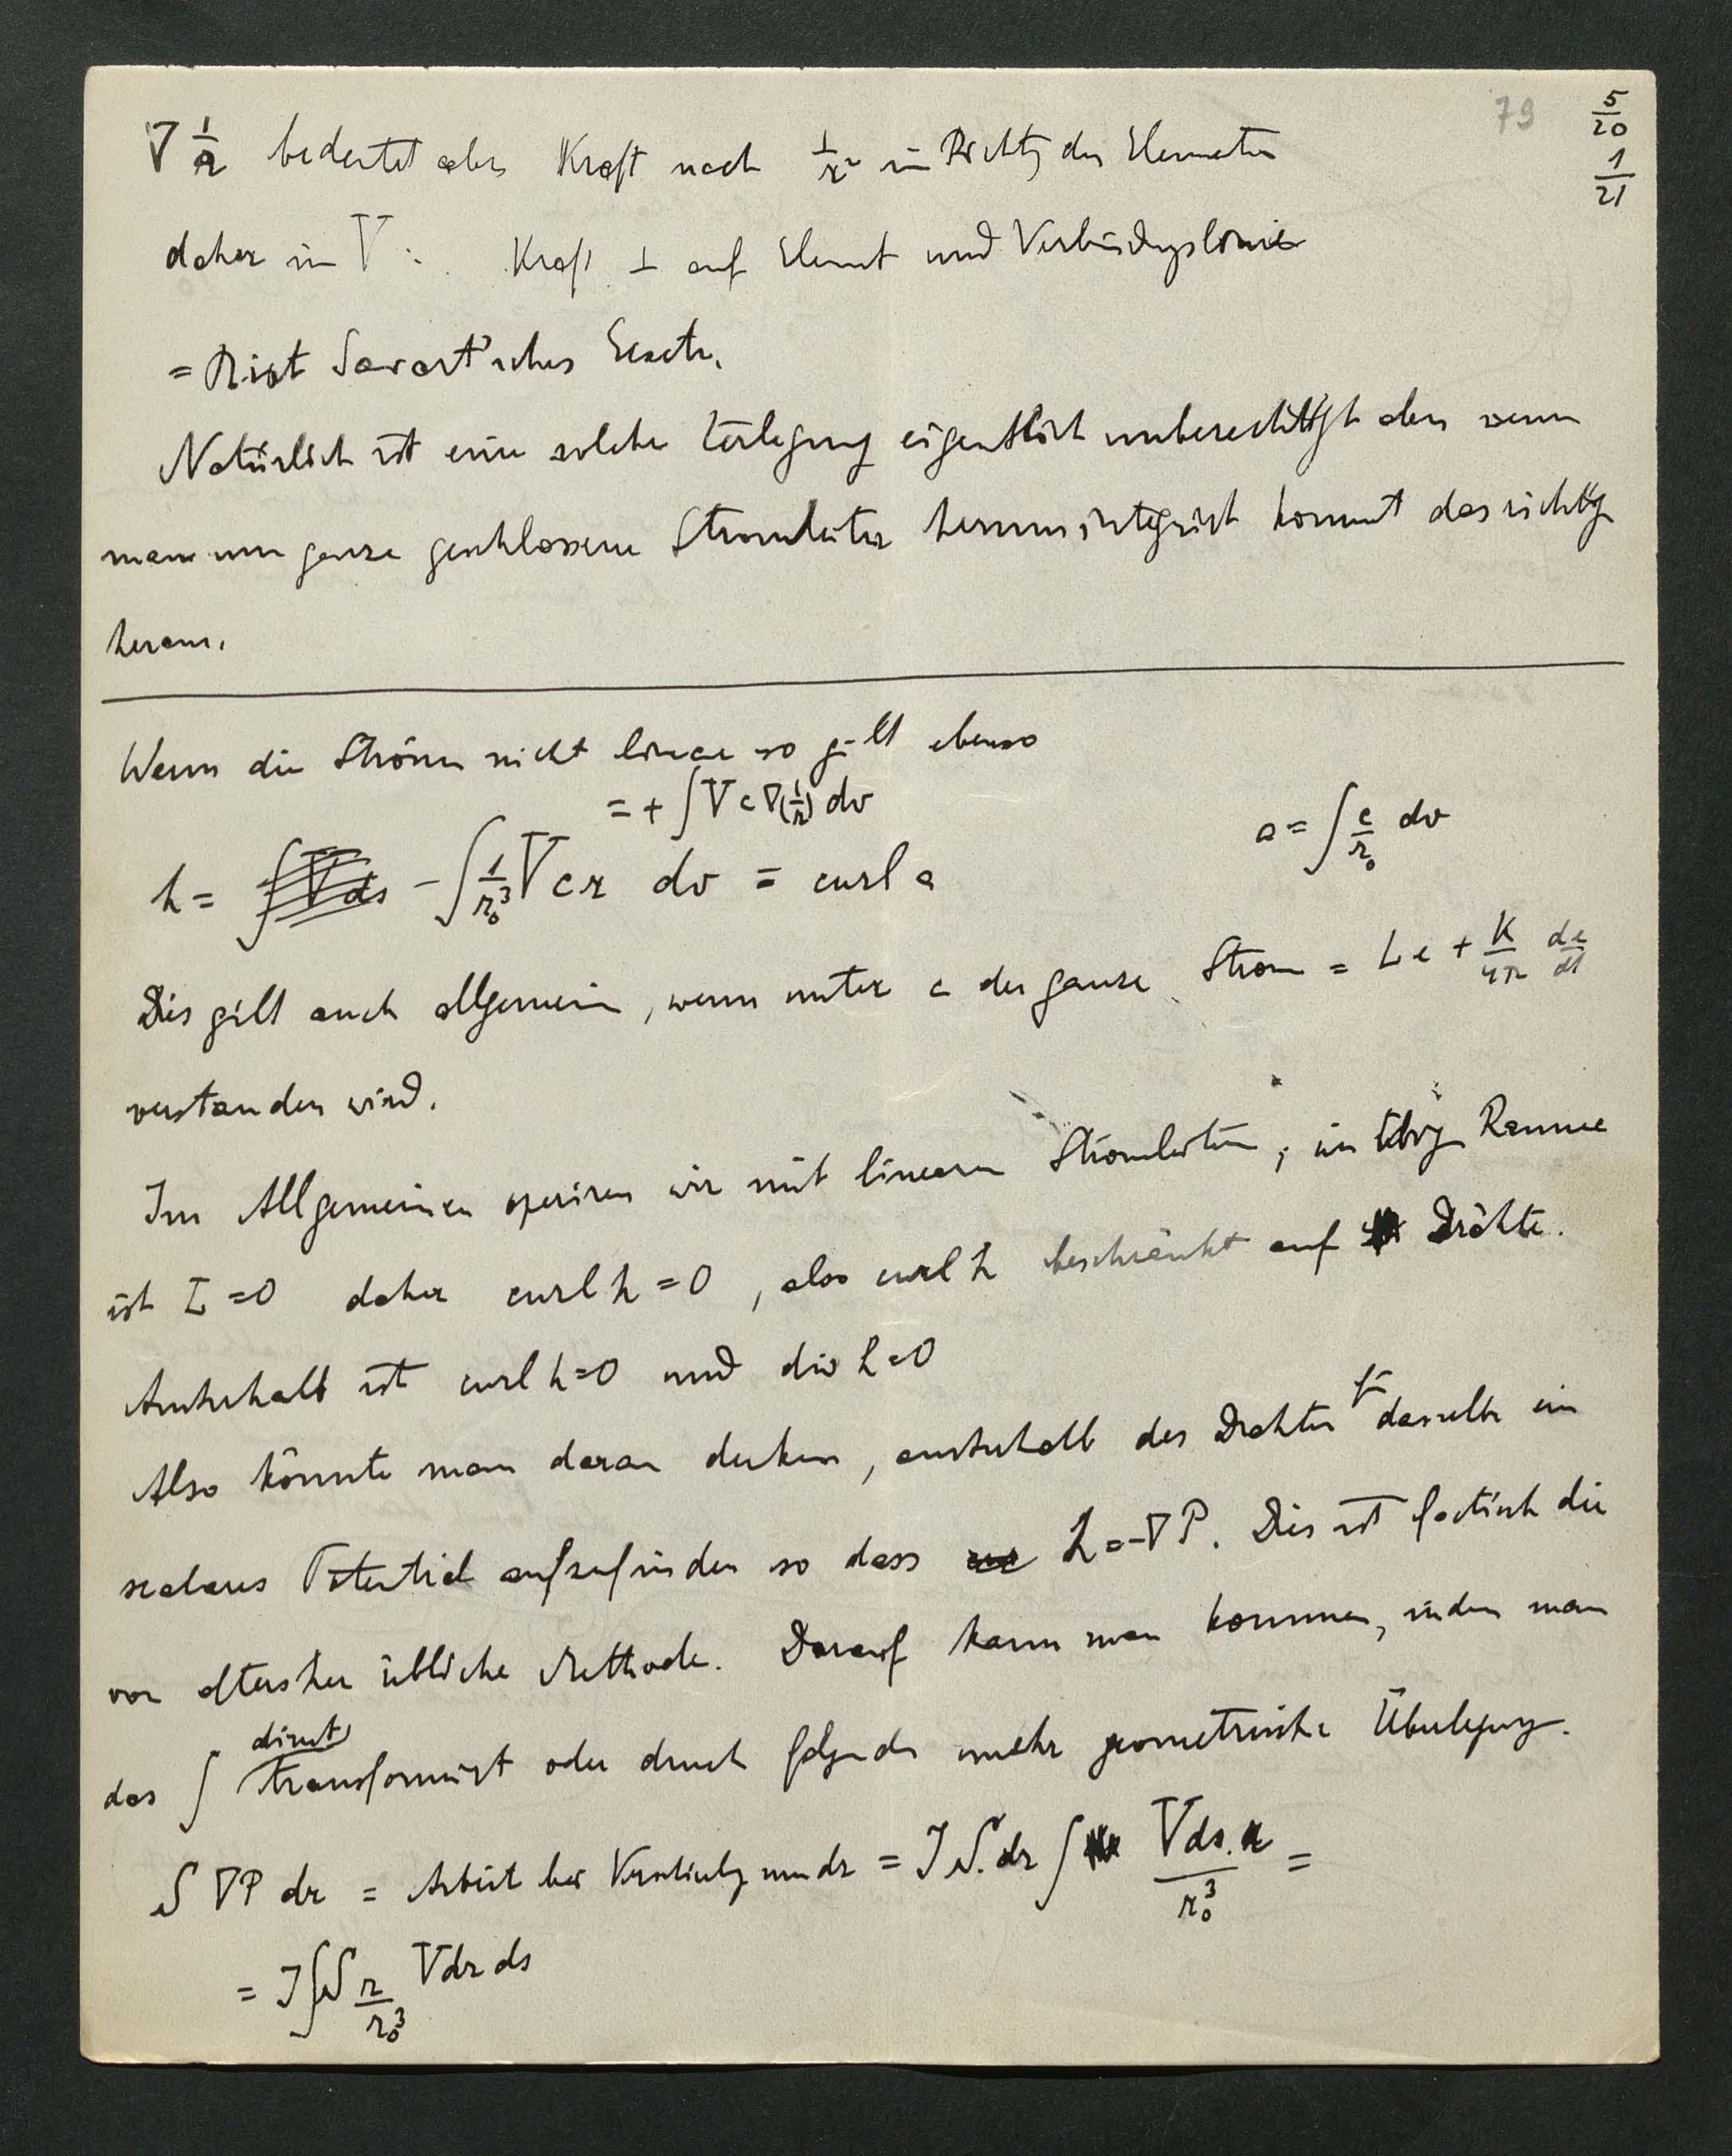 79
5/20
1/21
∇ 1/r bedeutet aber Kraft nach 1/r² in Richtg des Elementes
daher in V : Kraft ⊥ auf Element und Verbindungslinie
= Biot Savart'sches Gesetz.
Natürlich ist eine solche Zerlegung eigentlich unberechtigt aber wenn
man um ganze geschlossene Stromleiter herum integrirt kommt das richtige
heraus.
Wenn die Ströme nicht linear so gilt ebenso
= + ∫ V c ∇(1/r) dv
h = - ∫ 1/r₀³ V c r dv = curl a
a = ∫ c/r₀ dv
Dies gilt auch allgemein, wenn unter c der ganze Strom = L e + K/4π de/dt
verstanden wird.
Im Allgemeinen operiren wir mit linearen Stromleitern; im übrig Raume
ist L = 0 daher curl h = 0, also curl h beschränkt auf Drähte.
Ausserhalb ist curl h = 0 und div h = 0
Also könnte man daran denken, ausserhalb des Drahtes für denselben ein
scalares Potential aufzufinden so dass h = -∇P. Dies ist factisch die
von altersher übliche Methode. Darauf kann man kommen, indem man
das ∫ direct transformirt oder durch folgende mehr geometrische Überlegung.
S ∇P dr = Arbeit bei Verschiebg um dr = J S. dr ∫ V ds. r / r₀³ =
= J ∫ S r/r₀³ V dr ds